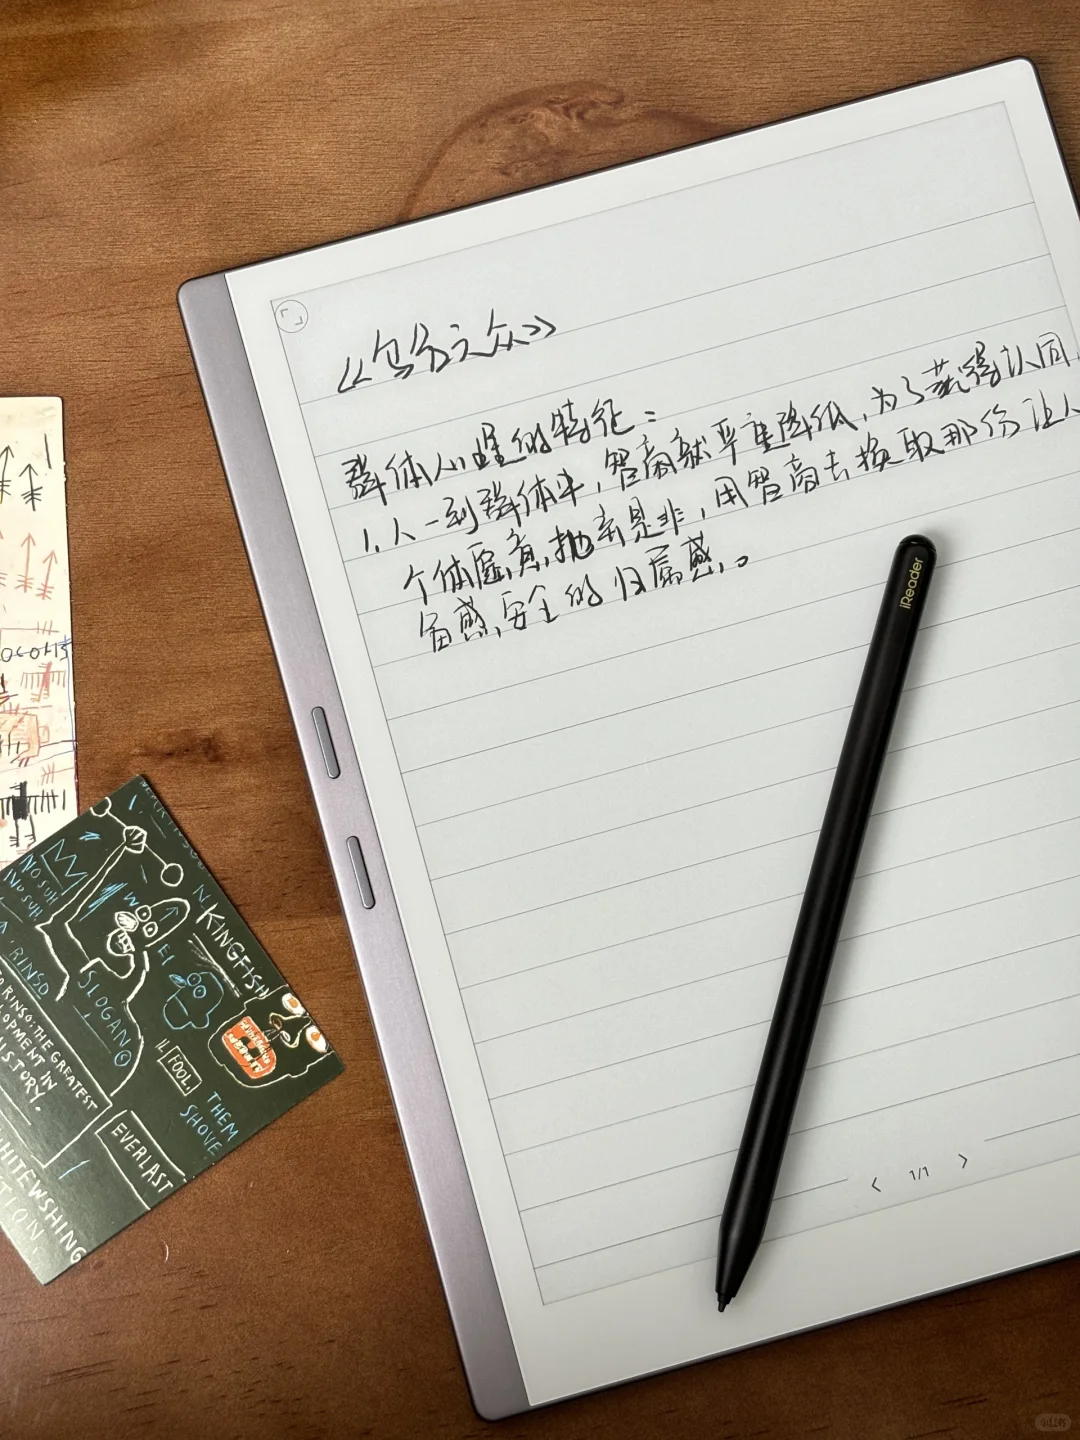 《乌合之众》
群体心理的特征：
1.人一到群体中，智商就严重降低，为了获得认同，
个体愿意抛弃是非，用智商去换取那份让人
备感安全的归属感。
iReader
< 1/1 >
NO SUH
NO SUH
RINSO
SLOGAN©
KINGFISH
EI
O RINSO: THE GREATEST
LOPMENT IN
HISTORY.
FOOL.
THEM
SHOVE
EVERLAST
HITEWSHING
TION